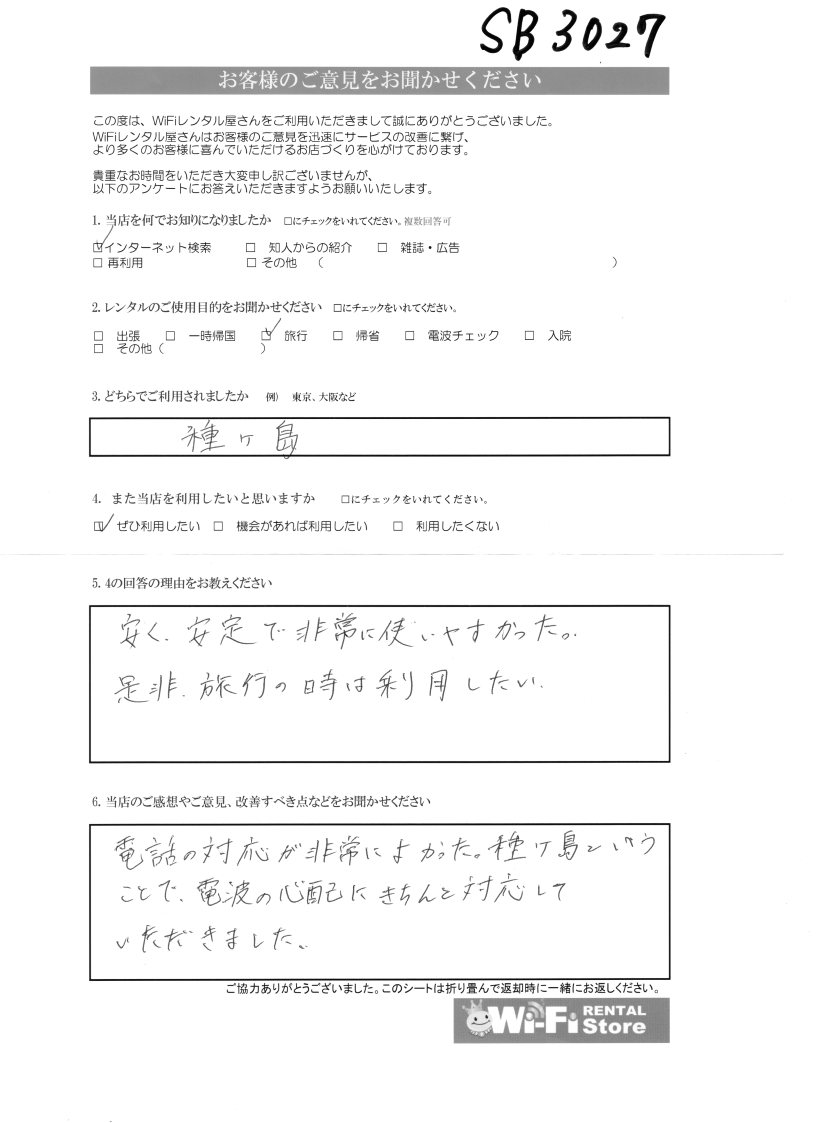 SB3027
お客様のご意見をお聞かせください
この度は、WiFiレンタル屋さんをご利用いただきまして誠にありがとうございました。
WiFiレンタル屋さんはお客様のご意見を迅速にサービスの改善に繋げ、
より多くのお客様に喜んでいただけるお店づくりを心がけております。
貴重なお時間をいただき大変申し訳ございませんが、
以下のアンケートにお答えいただきますようお願いいたします。
1. 当店を何でお知りになりましたか □にチェックをいれてください。複数回答可
☑インターネット検索 □ 知人からの紹介 □ 雑誌・広告
□ 再利用 □ その他 ( )
2. レンタルのご使用目的をお聞かせください □にチェックをいれてください。
□ 出張 □ 一時帰国 ☑ 旅行 □ 帰省 □ 電波チェック □ 入院
□ その他 ( )
3. どちらでご利用されましたか 例） 東京、大阪など
種ヶ島
4. また当店を利用したいと思いますか □にチェックをいれてください。
☑ ぜひ利用したい □ 機会があれば利用したい □ 利用したくない
5. 4の回答の理由をお教えください
安く、安定で非常に使いやすかった。
是非、旅行の時は利用したい。
6. 当店のご感想やご意見、改善すべき点などをお聞かせください
電話の対応が非常によかった。種ヶ島という
ことで、電波の心配にきちんと対応して
いただきました。
ご協力ありがとうございました。このシートは折り畳んで返却時に一緒にお返しください。
Wi-Fi RENTAL Store